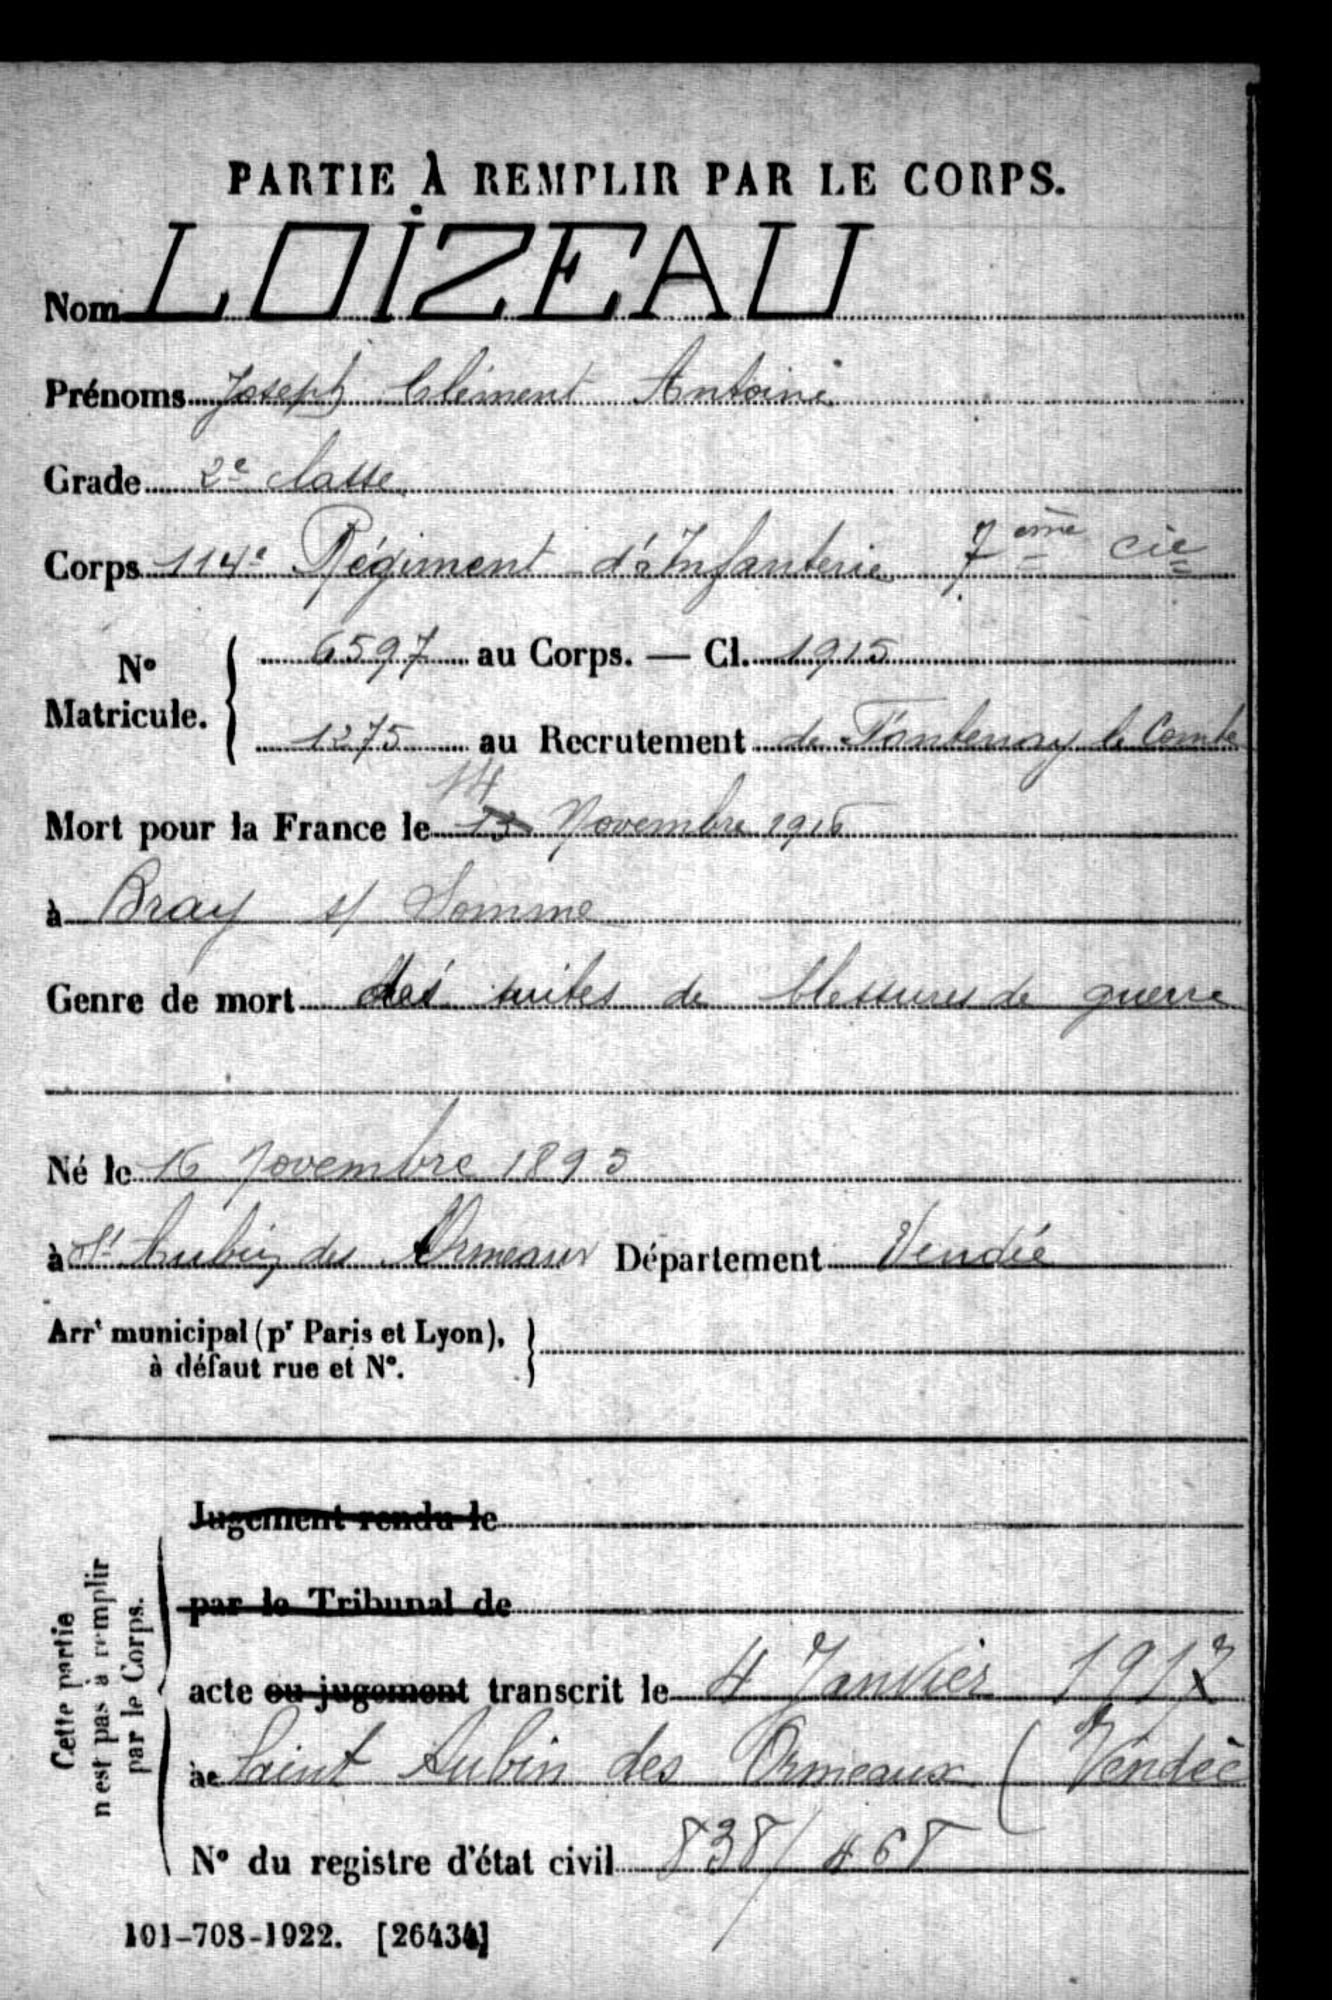 PARTIE À REMPLIR PAR LE CORPS.
Nom LOIZEAU
Prénoms Joseph Clément Antoine
Grade 2e classe
Corps 114e Régiment d'Infanterie 7ème Cie
N° Matricule. 6597 au Corps. — Cl. 1915
1275 au Recrutement de Fontenay le Comte
14
Mort pour la France le 13 Novembre 1916
à Bray s/ Somme
Genre de mort des suites de blessures de guerre
Né le 16 Novembre 1895
à St Aubin des Ormeaux Département Vendée
Arrt municipal (pr Paris et Lyon),
à défaut rue et N°.
Cette partie
n'est pas à remplir
par le Corps.
Jugement rendu le
par le Tribunal de
acte ou jugement transcrit le 4 Janvier 1917
à Saint Aubin des Ormeaux (Vendée
N° du registre d'état civil 838/468
101-708-1922. [26434]